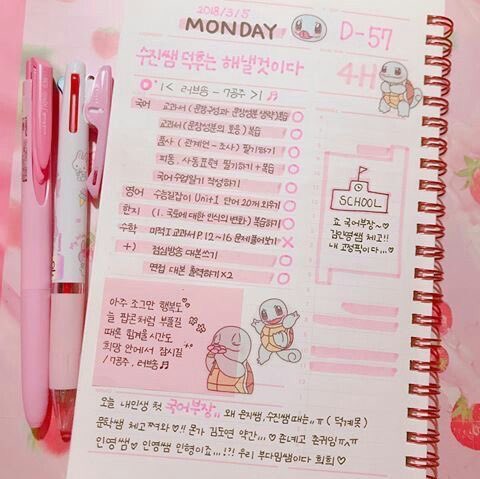 2018/3/5
MONDAY
D-57
수진쌤 덕후는 해낼것이다
4H
♪|< 러브송 - 7공주 >|♬
국어 교과서 (문장구성과 문장성분 생략) 복습
교과서 (문장성분의 호응) 복습
품사 (관계언-조사) 필기하기
피동, 사동표현 필기하기 + 복습
국어수업일기 작성하기
영어 수능길잡이 Unit1 단어 20개 외우기
한지 (1. 국토에 대한 인식의 변화) 복습하기
수학 미적I 교과서 P.12~16 문제풀어보기
+) 점심방송 대본쓰기
면접 대본 출력하기 X2
SCHOOL
효 국어부장~♡
김인영쌤 체고!!
내 고정픽이다...♡
아주 조그만 행복도
늘 팝콘처럼 부풀길
때론 힘겨울시간도
희망 안에서 잠시길
/ 7공주, 러브송♬
오늘 내인생 첫 국어부장,, 왜 윤지쌤, 수진쌤때는,,ㅠ (덕계못)
문학쌤 체고 쩌와♡!! 온가 김도연 약간...♡ 존녜고 존귀임ㅠㅅㅠ
인영쌤♡ 인영쌤 인형이죠...!?! 우리 부다밈쌤이다 희희♡